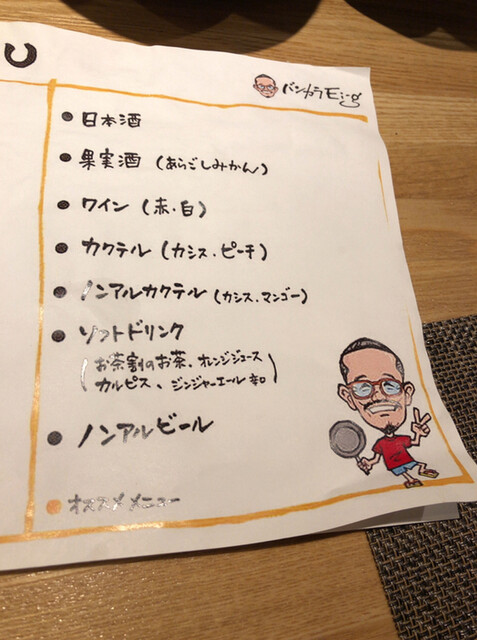 バンカラEi-g
● 日本酒
● 果実酒 (あらごしみかん)
● ワイン (赤・白)
● カクテル (カシス・ピーチ)
● ノンアルカクテル (カシス・マンゴー)
● ソフトドリンク
(お茶割のお茶、オレンジジュース
カルピス、ジンジャーエール 辛口)
● ノンアルビール
● オススメメニュー